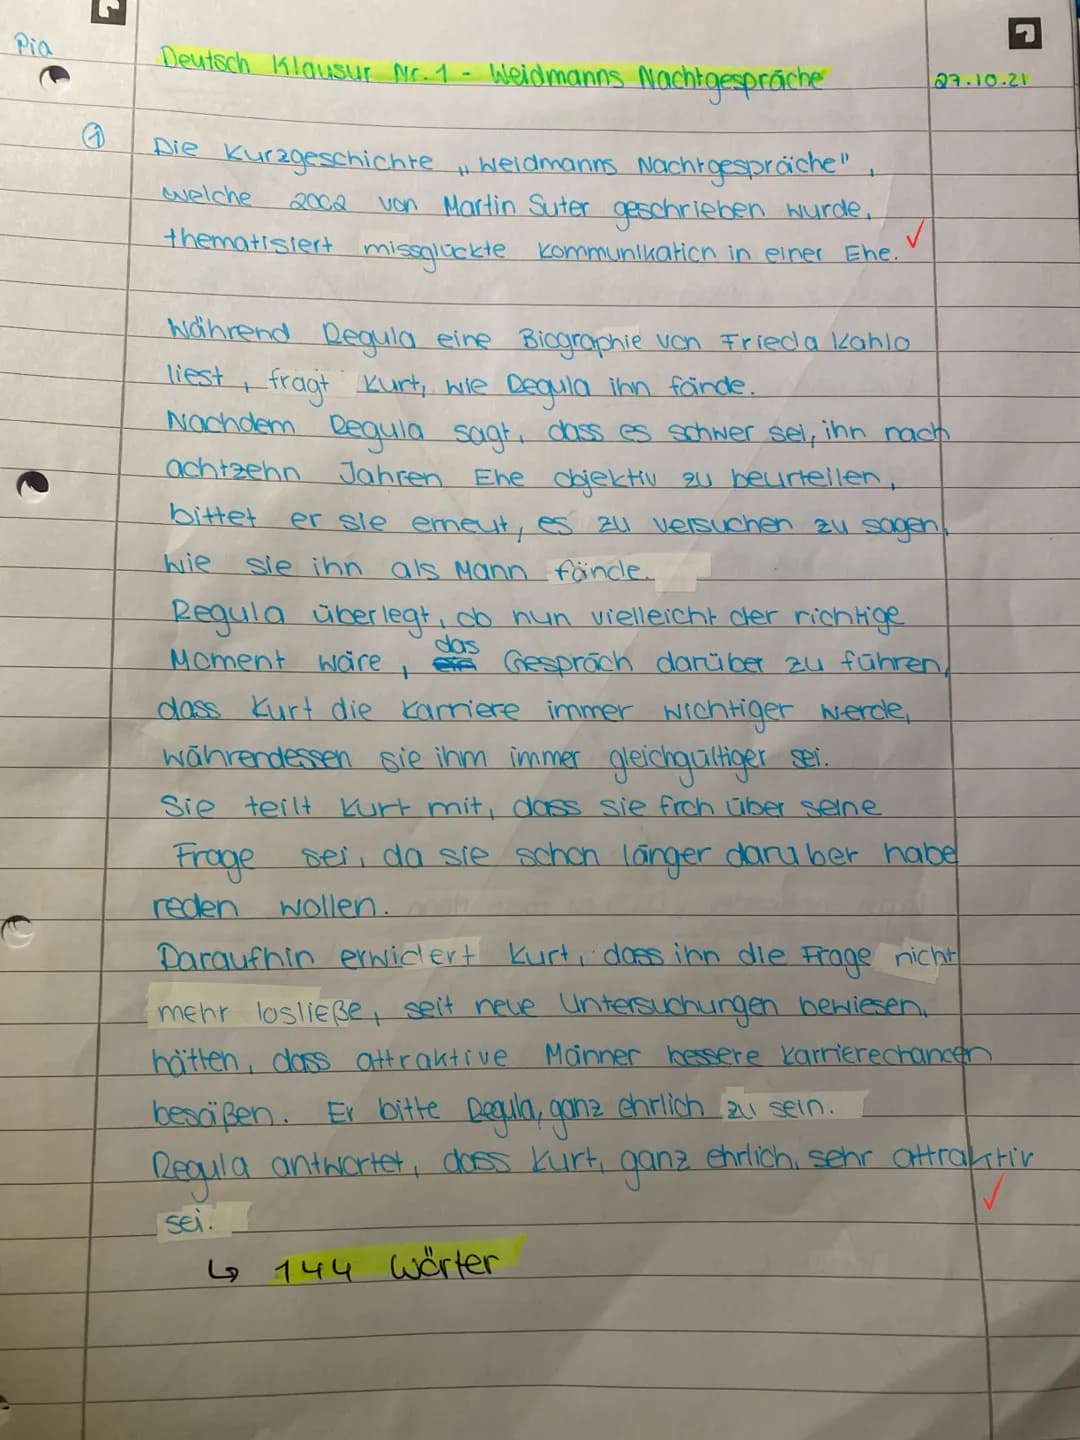 Pia
Deutsch Klausur Nr. 1 - Weidmanns Nachtgespräche
27.10.21
① Die Kurzgeschichte „Weidmanns Nachtgespräche",
welche 2002 von Martin Suter geschrieben wurde,
thematisiert missglückte Kommunikation in einer Ehe. ✓
Während Regula eine Biographie von Frieda Kahlo
liest, fragt Kurt, wie Regula ihn fände.
Nachdem Regula sagt, dass es schwer sei, ihn nach
achtzehn Jahren Ehe objektiv zu beurteilen,
bittet er sie erneut, es zu versuchen zu sagen,
wie sie ihn als Mann fände.
Regula überlegt, ob nun vielleicht der richtige
Moment wäre, das Gespräch darüber zu führen,
dass Kurt die Karriere immer wichtiger werde,
währendessen sie ihm immer gleichgültiger sei.
Sie teilt Kurt mit, dass sie froh über seine
Frage sei, da sie schon länger darüber habe
reden wollen.
Daraufhin erwidert Kurt, dass ihn die Frage nicht
mehr losließe, seit neue Untersuchungen bewiesen,
hätten, dass attraktive Männer bessere Karrierechancen
besäßen. Er bitte Regula, ganz ehrlich zu sein.
Regula antwortet, dass Kurt, ganz ehrlich, sehr attraktiv ✓
sei.
↳ 144 Wörter